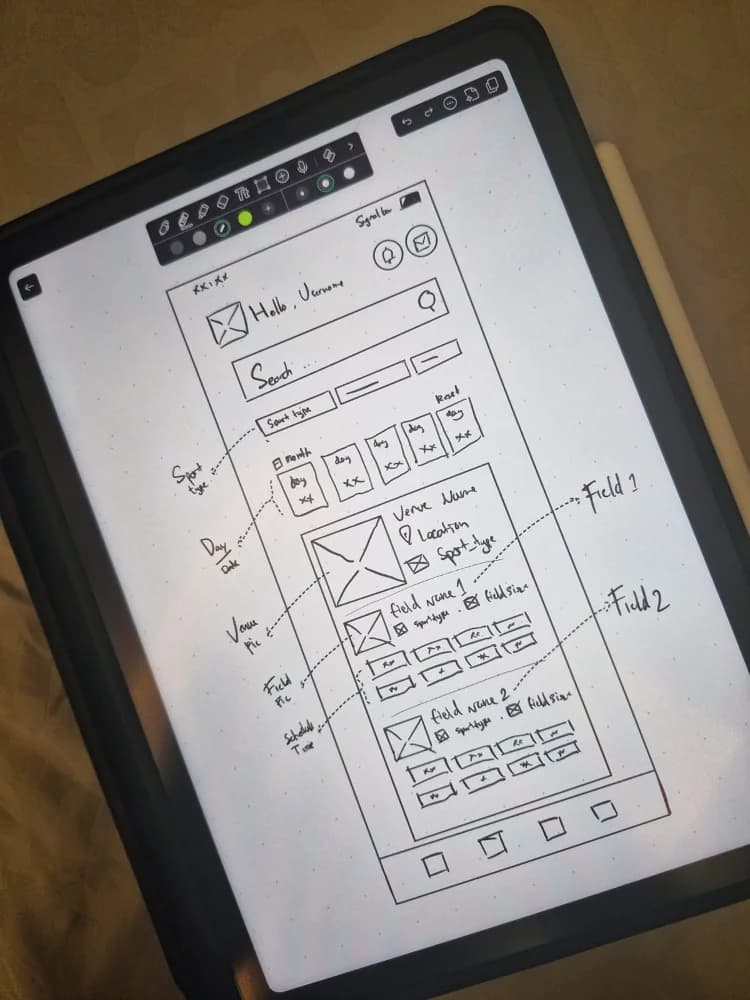 Signal bar
xx:xx
Hello, Username
Search ...
Sport type
Reset
month
day
xx
day
xx
day
xx
day
xx
day
xx
Venue Name
Location
Sport_type
field name 1
sportype . field size
field name 2
sportype . field size
Sport
type
Day/
Date
Venue
pic
Field
pic
Schedule
Time
Field 1
Field 2